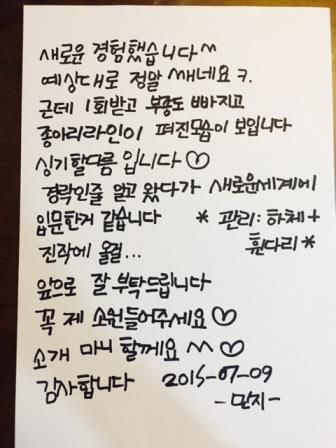 새로운 경험했습니다^^
예상대로 정말 쎄네요 ㅋ.
근데 1회받고 부종도 빠지고
종아리라인이 펴진모습이 보입니다
싱기할따름 입니다♡
경락인줄 알고 왔다가 새로운세계에
입문한거 같습니다 * 관리: 하체 +
진작에 올걸... 휜다리 *
앞으로 잘 부탁드립니다
꼭 제 소원들어주세요♡
소개 마니 할께요 ^^ ♡
감사합니다 2015-07-09
-민지-